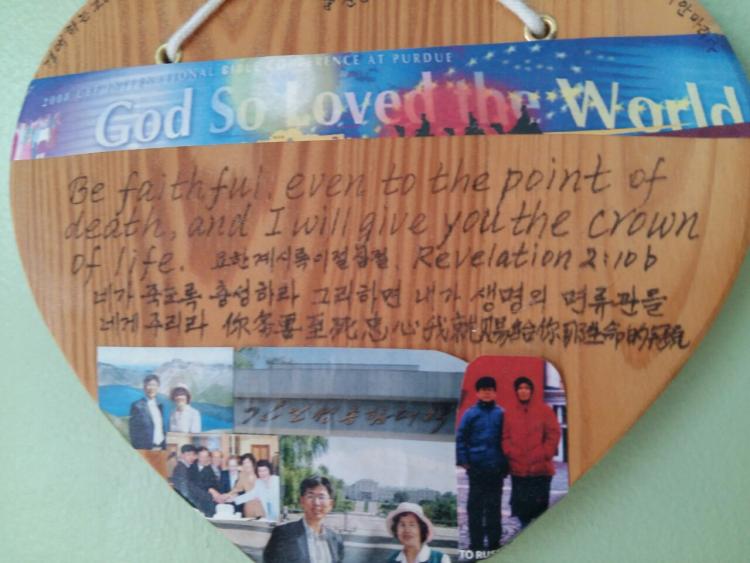 2008 CMI INTERNATIONAL BIBLE CONFERENCE AT PURDUE
God So Loved the World
Be faithful, even to the point of
death, and I will give you the crown
of life. 요한계시록이절십절. Revelation 2:10b
네가 죽도록 충성하라 그리하면 내가 생명의 면류관을
네게 주리라 你务要至死忠心我就賜給你那生命的冠冕
TO RUS